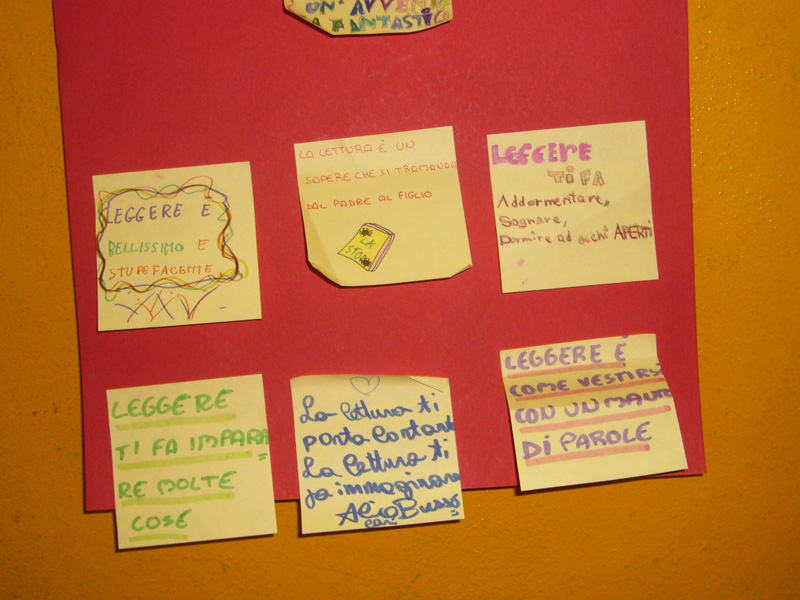 UN' AVVENTU
A FANTASTICA
LEGGERE È
BELLISSIMO E
STUPEFACENTE
LA LETTURA È UN
SAPERE CHE SI TRAMANDA
DAL PADRE AL FIGLIO
LA
STO
LEGGERE
TI FA
Addormentare,
Sognare,
Dormire ad occhi APERTI
LEGGERE
TI FA IMPARA=
RE MOLTE
COSE
La lettura ti
porta lontano
La lettura ti
fa immaginare
LEGGERE È
COME VESTIRSI
CON UN MANTO
DI PAROLE